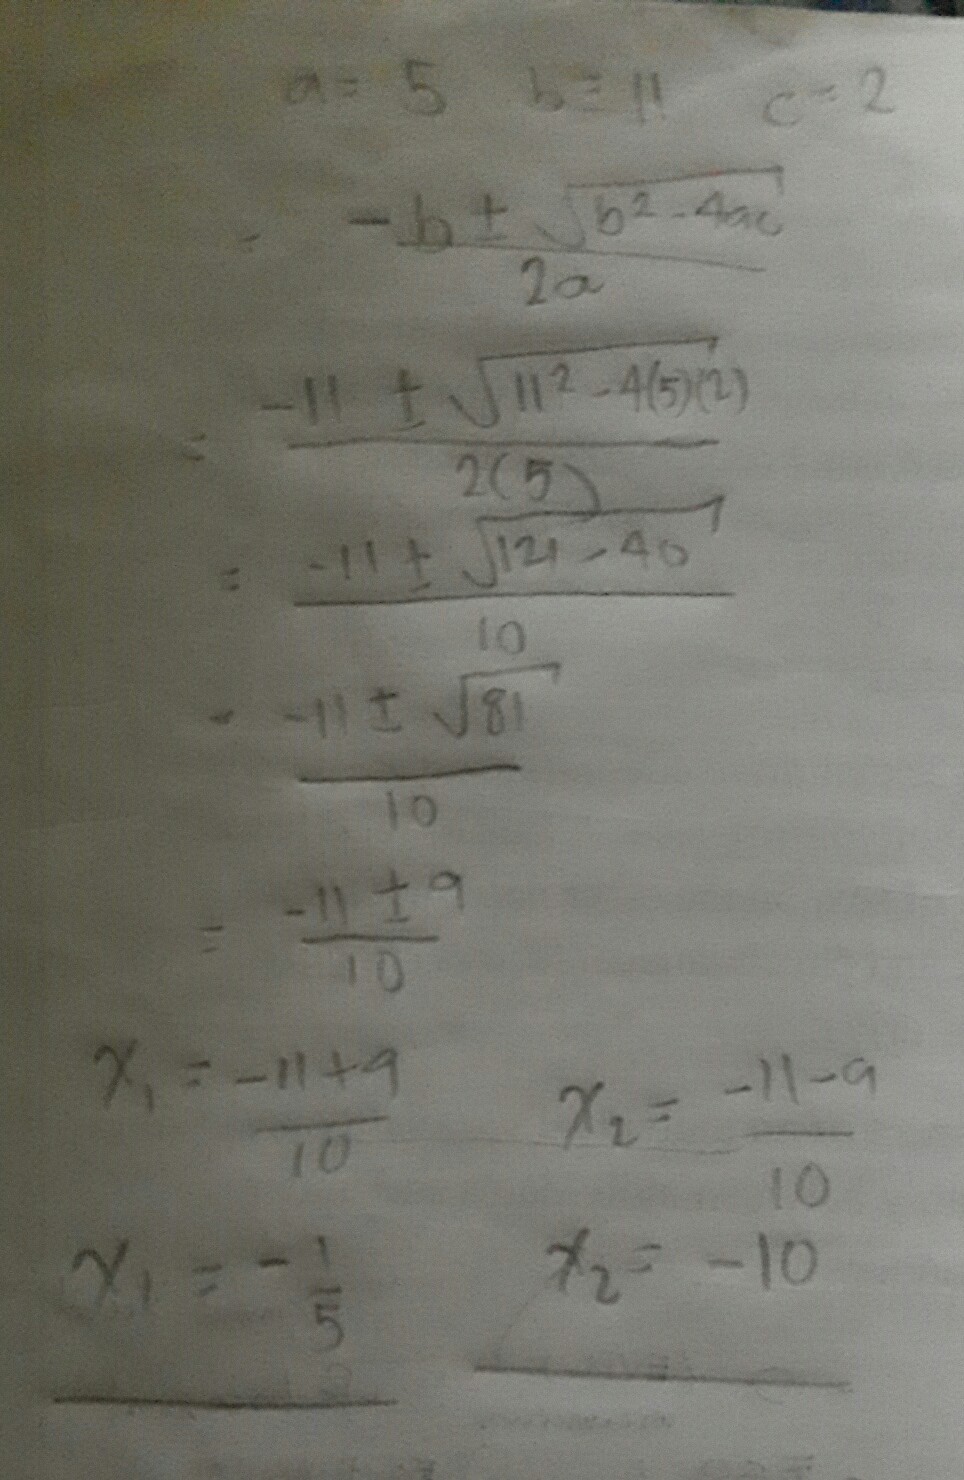 a = 5 b = 11 c = 2
= -b ± √b² - 4ac
2a
= -11 ± √11² - 4(5)(2)
2(5)
= -11 ± √121 - 40
10
= -11 ± √81
10
= -11 ± 9
10
x₁ = -11+9 x₂ = -11-9
10 10
x₁ = - 1 x₂ = -10
5